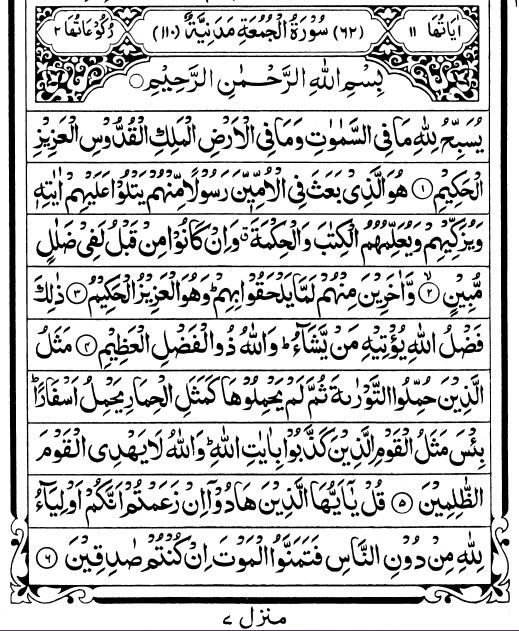 اٰيَاتُهَا ١١ (٦٢) سُوْرَةُ الْجُمُعَةِ مَدَنِيَّةٌ (١١٠) رُكُوْعَاتُهَا ٢
بِسْمِ اللهِ الرَّحْمٰنِ الرَّحِيْمِ
يُسَبِّحُ لِلّٰهِ مَا فِى السَّمٰوٰتِ وَمَا فِى الْاَرْضِ الْمَلِكِ الْقُدُّوْسِ الْعَزِيْزِ
الْحَكِيْمِ ١ هُوَ الَّذِىْ بَعَثَ فِى الْاُمِّيّٖنَ رَسُوْلًا مِّنْهُمْ يَتْلُوْا عَلَيْهِمْ اٰيٰتِهٖ
وَيُزَكِّيْهِمْ وَيُعَلِّمُهُمُ الْكِتٰبَ وَالْحِكْمَةَ وَاِنْ كَانُوْا مِنْ قَبْلُ لَفِىْ ضَلٰلٍ
مُّبِيْنٍ ٢ وَّاٰخَرِيْنَ مِنْهُمْ لَمَّا يَلْحَقُوْا بِهِمْ ؕ وَهُوَ الْعَزِيْزُ الْحَكِيْمُ ٣ ذٰلِكَ
فَضْلُ اللهِ يُؤْتِيْهِ مَنْ يَّشَآءُ ؕ وَاللهُ ذُو الْفَضْلِ الْعَظِيْمِ ٤ مَثَلُ
الَّذِيْنَ حُمِّلُوا التَّوْرٰىةَ ثُمَّ لَمْ يَحْمِلُوْهَا كَمَثَلِ الْحِمَارِ يَحْمِلُ اَسْفَارًا ؕ
بِئْسَ مَثَلُ الْقَوْمِ الَّذِيْنَ كَذَّبُوْا بِاٰيٰتِ اللهِ ؕ وَاللهُ لَا يَهْدِى الْقَوْمَ
الظّٰلِمِيْنَ ٥ قُلْ يٰٓاَيُّهَا الَّذِيْنَ هَادُوْٓا اِنْ زَعَمْتُمْ اَنَّكُمْ اَوْلِيَآءُ
لِلّٰهِ مِنْ دُوْنِ النَّاسِ فَتَمَنَّوُا الْمَوْتَ اِنْ كُنْتُمْ صٰدِقِيْنَ ٦
منزل ٧